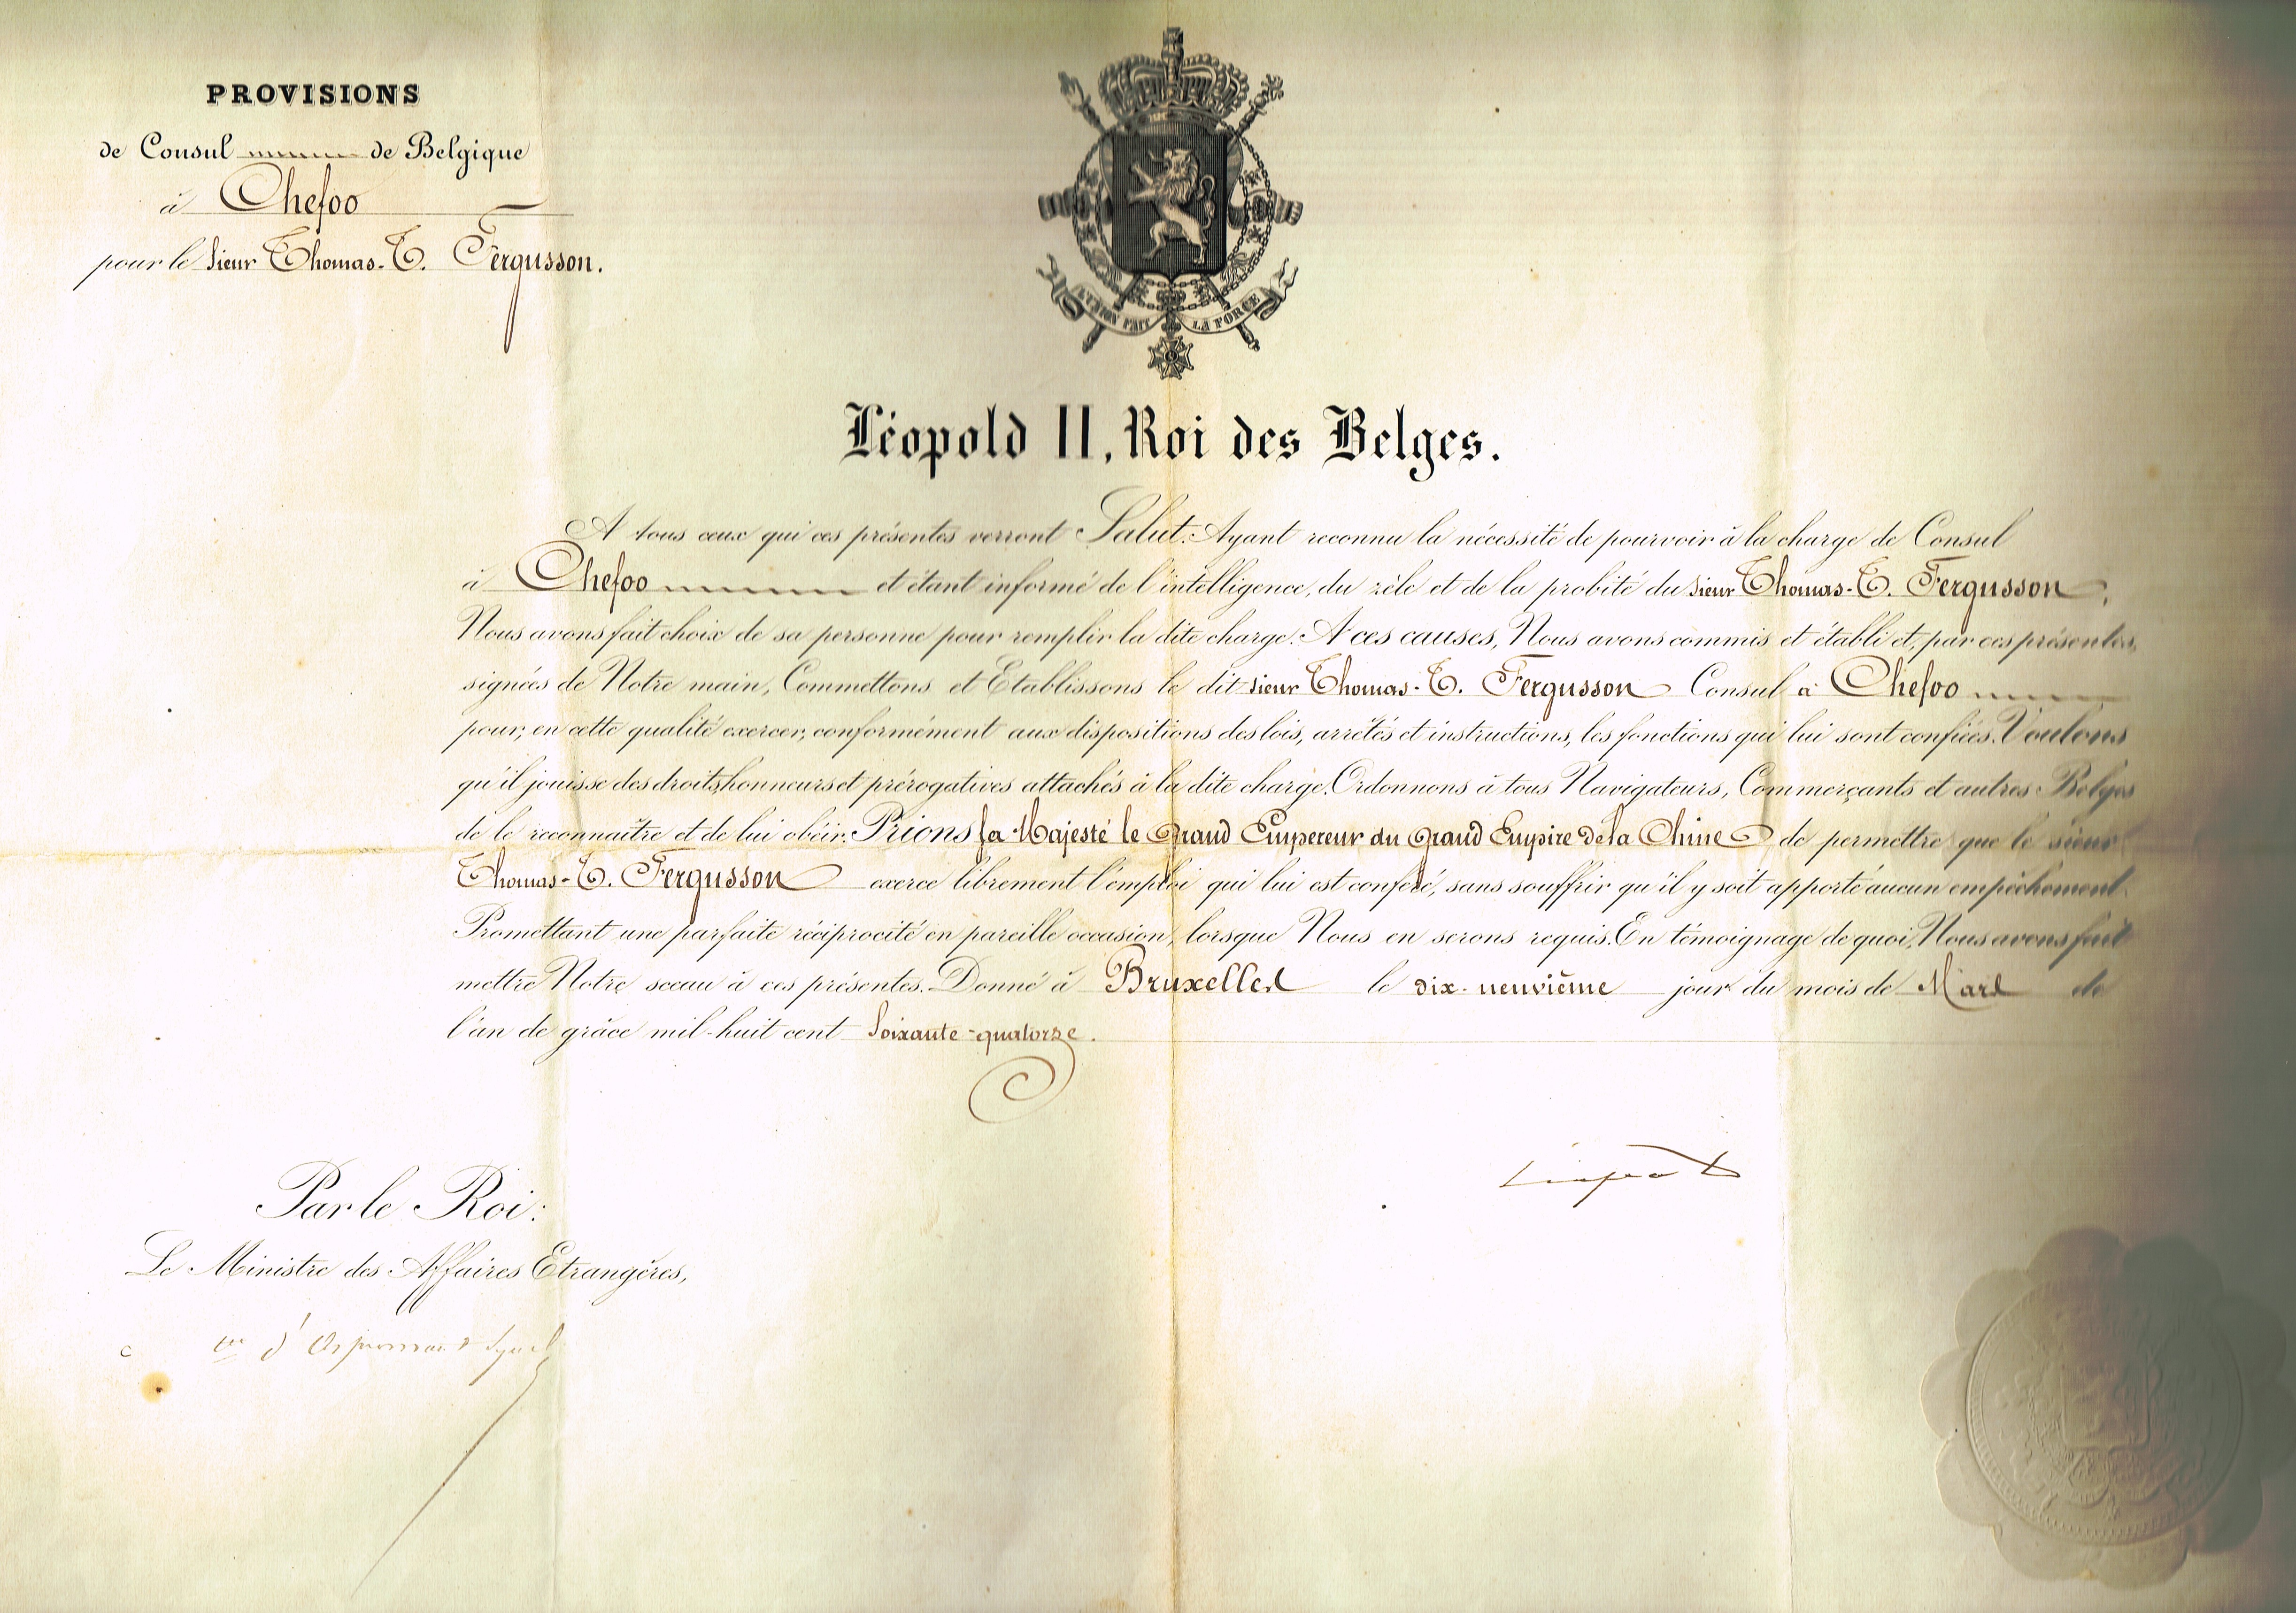 PROVISIONS
de Consul de Belgique
à Chefoo
pour le sieur Thomas-T. Fergusson.
L'UNION FAIT LA FORCE
Léopold II, Roi des Belges.
A tous ceux qui ces présentes verront Salut. Ayant reconnu la nécessité de pourvoir à la charge de Consul
à Chefoo et étant informé de l'intelligence, du zèle et de la probité du sieur Thomas-T. Fergusson,
Nous avons fait choix de sa personne pour remplir la dite charge. A ces causes, Nous avons commis et établi et, par ces présentes,
signées de Notre main, Commettons et Etablissons le dit sieur Thomas-T. Fergusson Consul à Chefoo
pour, en cette qualité exercer, conformément aux dispositions des lois, arrêtés et instructions, les fonctions qui lui sont confiées. Voulons
qu'il jouisse des droits, honneurs et prérogatives attachés à la dite charge. Ordonnons à tous Navigateurs, Commerçants et autres Belges
de le reconnaître et de lui obéir. Prions Sa Majesté le Grand Empereur du Grand Empire de la Chine de permettre que le sieur
Thomas-T. Fergusson exerce librement l'emploi qui lui est conféré, sans souffrir qu'il y soit apporté aucun empêchement.
Promettant une parfaite réciprocité en pareille occasion, lorsque Nous en serons requis. En témoignage de quoi, Nous avons fait
mettre Notre sceau à ces présentes. Donné à Bruxelles le dix-neuvième jour du mois de Mars de
l'an de grâce mil-huit cent soixante-quatorze.
Léopold
Par le Roi:
Le Ministre des Affaires Etrangères,
Cte d'Aspremont Lynden